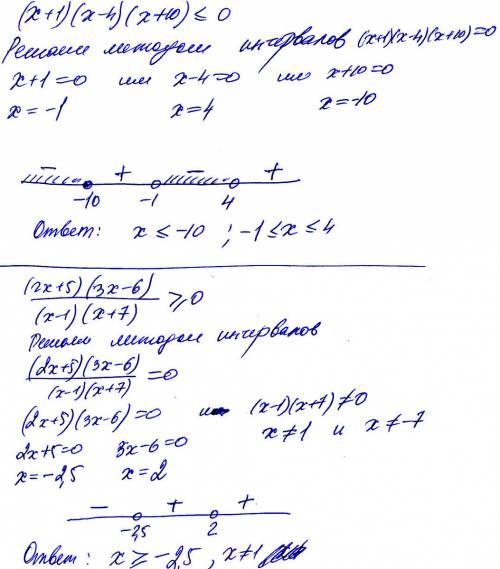 (x+1)(x-4)(x+10) ≤ 0
Решаем методом интервалов (x+1)(x-4)(x+10)=0
x+1=0 или x-4=0 или x+10=0
x=-1 x=4 x=-10
− + − +
-10 -1 4
Ответ: x ≤ -10 ; -1 ≤ x ≤ 4
(2x+5)(3x-6)
(x-1)(x+7) ≥ 0
Решаем методом интервалов
(2x+5)(3x-6)
(x-1)(x+7) = 0
(2x+5)(3x-6)=0 и (x-1)(x+7)≠0
2x+5=0 3x-6=0 x≠1 и x≠-7
x=-2,5 x=2
− + +
-2,5 2
Ответ: x ≥ -2,5 , x≠1